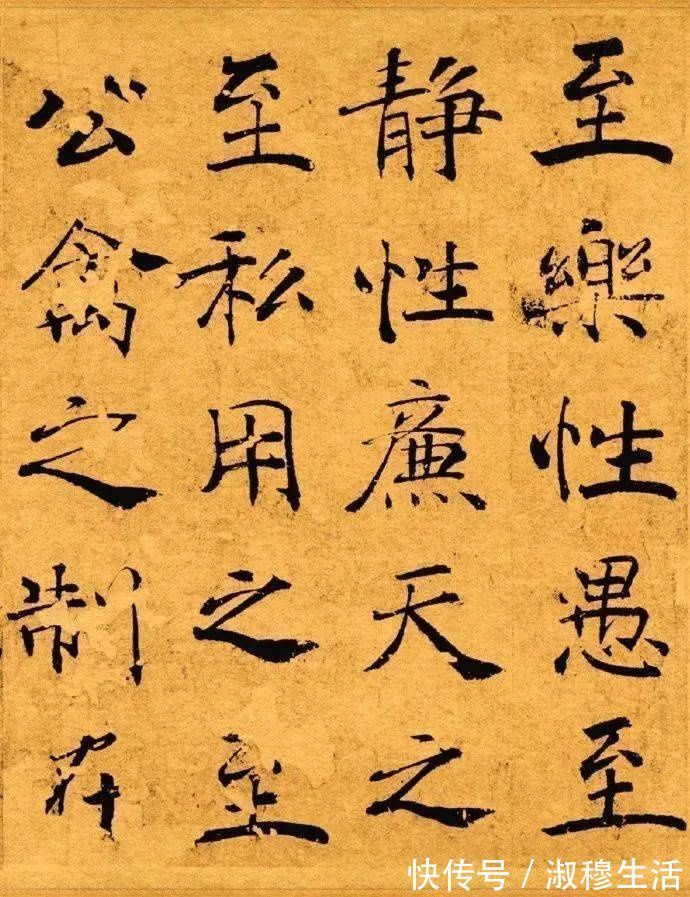 至樂性愚至
静性廉天之
至私用之至
公禽之制
快传号 / 淑穆生活